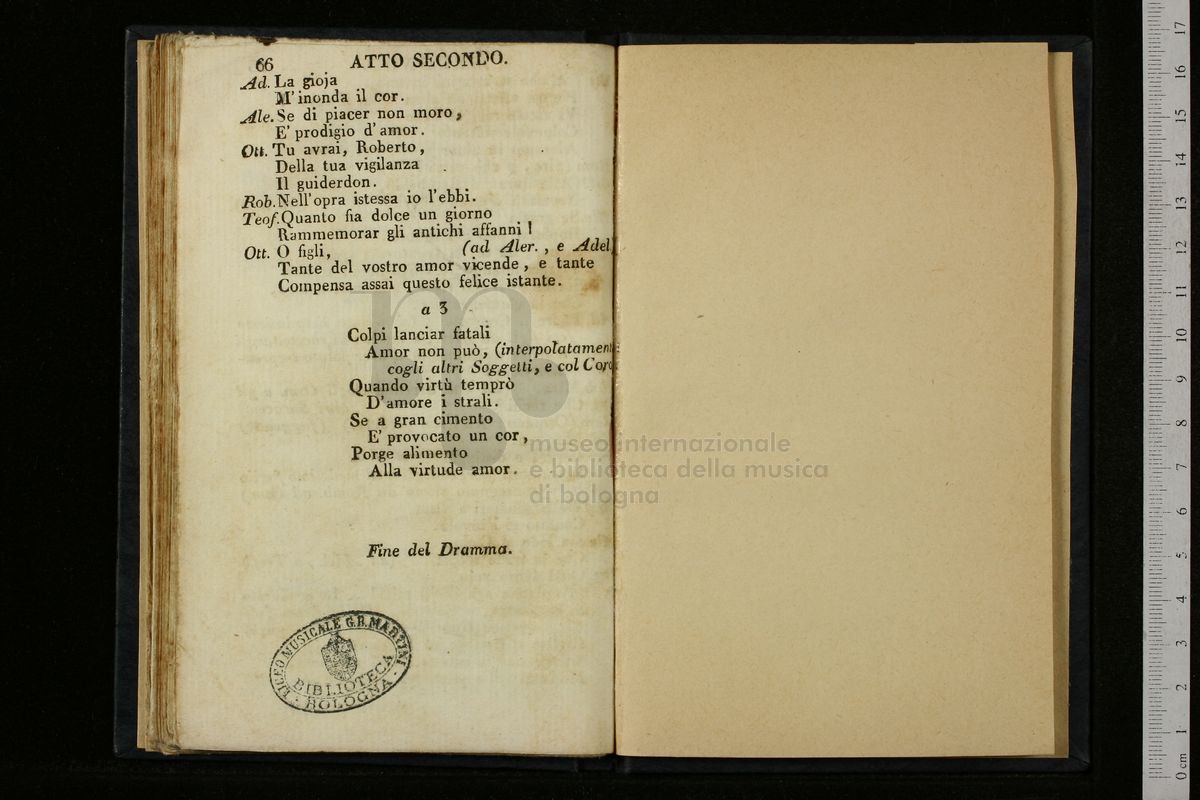 66 ATTO SECONDO.
Ad. La gioja
M'inonda il cor.
Ale. Se di piacer non moro,
E' prodigio d'amor.
Ott. Tu avrai, Roberto,
Della tua vigilanza
Il guiderdon.
Rob. Nell'opra istessa io l'ebbi.
Teof. Quanto fia dolce un giorno
Rammemorar gli antichi affanni!
Ott. O figli, (ad Aler., e Adel.
Tante del vostro amor vicende, e tante
Compensa assai questo felice istante.
a 3
Colpi lanciar fatali
Amor non può, (interpolatament
cogli altri Soggetti, e col Coro
Quando virtù temprò
D'amore i strali.
Se a gran cimento
E' provocato un cor,
Porge alimento
Alla virtude amor.
Fine del Dramma.
LICEO MUSICALE G.B. MARTINI
BIBLIOTECA
· BOLOGNA ·
museo internazionale
e biblioteca della musica
di bologna
17
16
15
14
13
12
11
10
9
8
7
6
5
4
3
2
1
0 cm